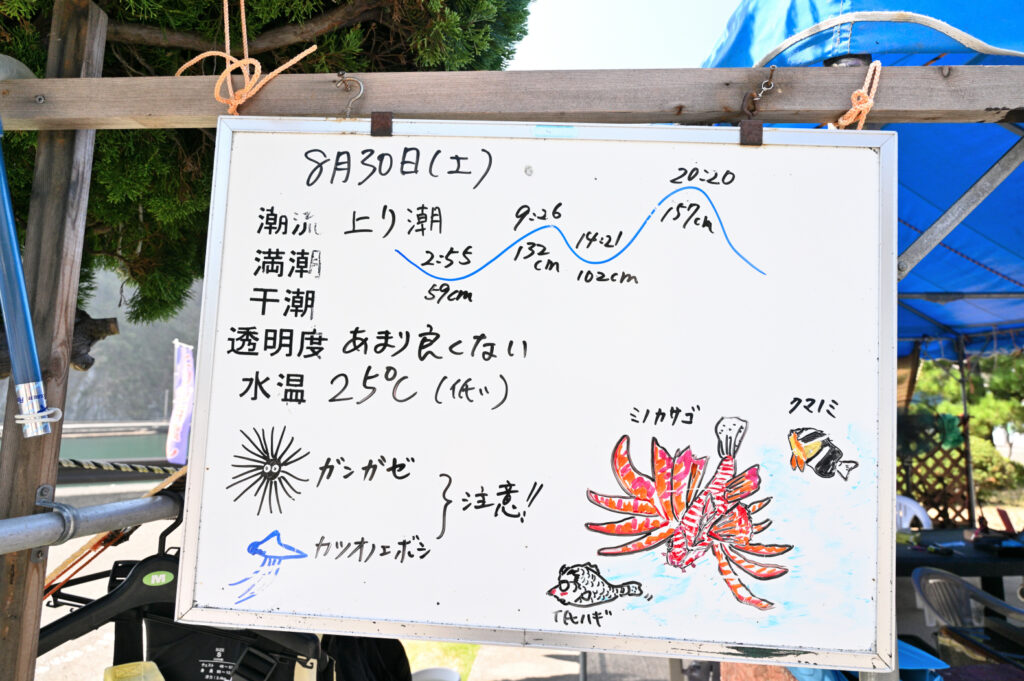 8月30日(土)
潮流 上り潮
満潮
干潮
2:55
59cm
9:26
132cm
14:21
102cm
20:20
157cm
透明度 あまり良くない
水温 25℃ (低い)
ガンガゼ
カツオノエボシ
注意!!
ミノカサゴ
クマノミ
M